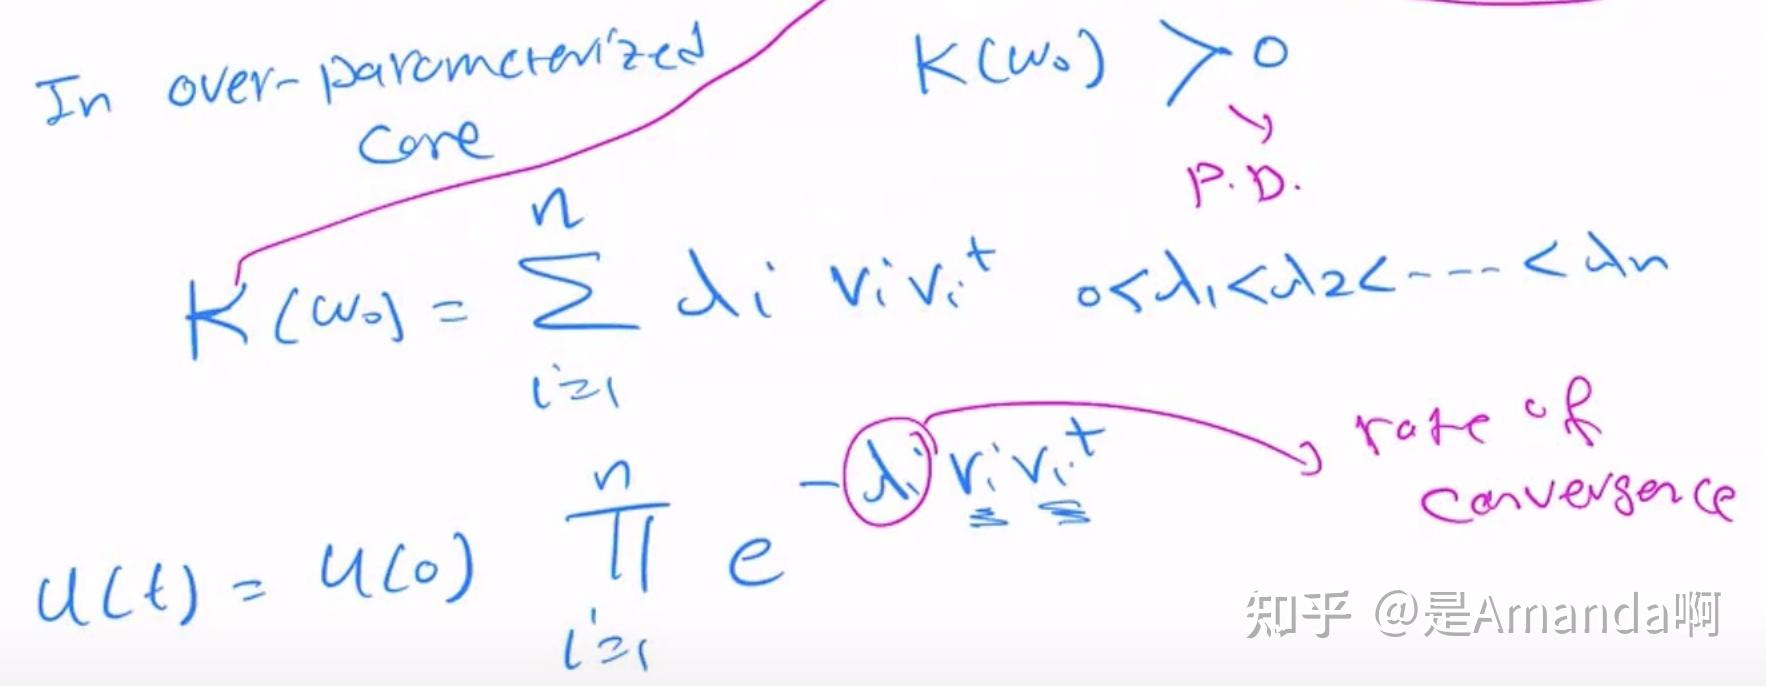 In over-parameterized K(w₀) ≻ 0
case
P.D.
K(w₀) = ∑ᵢ₌₁ⁿ λi vi viᵗ 0<λ₁<λ₂<----<λn
U(t) = U(0) ∏ᵢ₌₁ⁿ e^(-λi vi viᵗ) rate of
convergence
知乎 @是Amanda啊